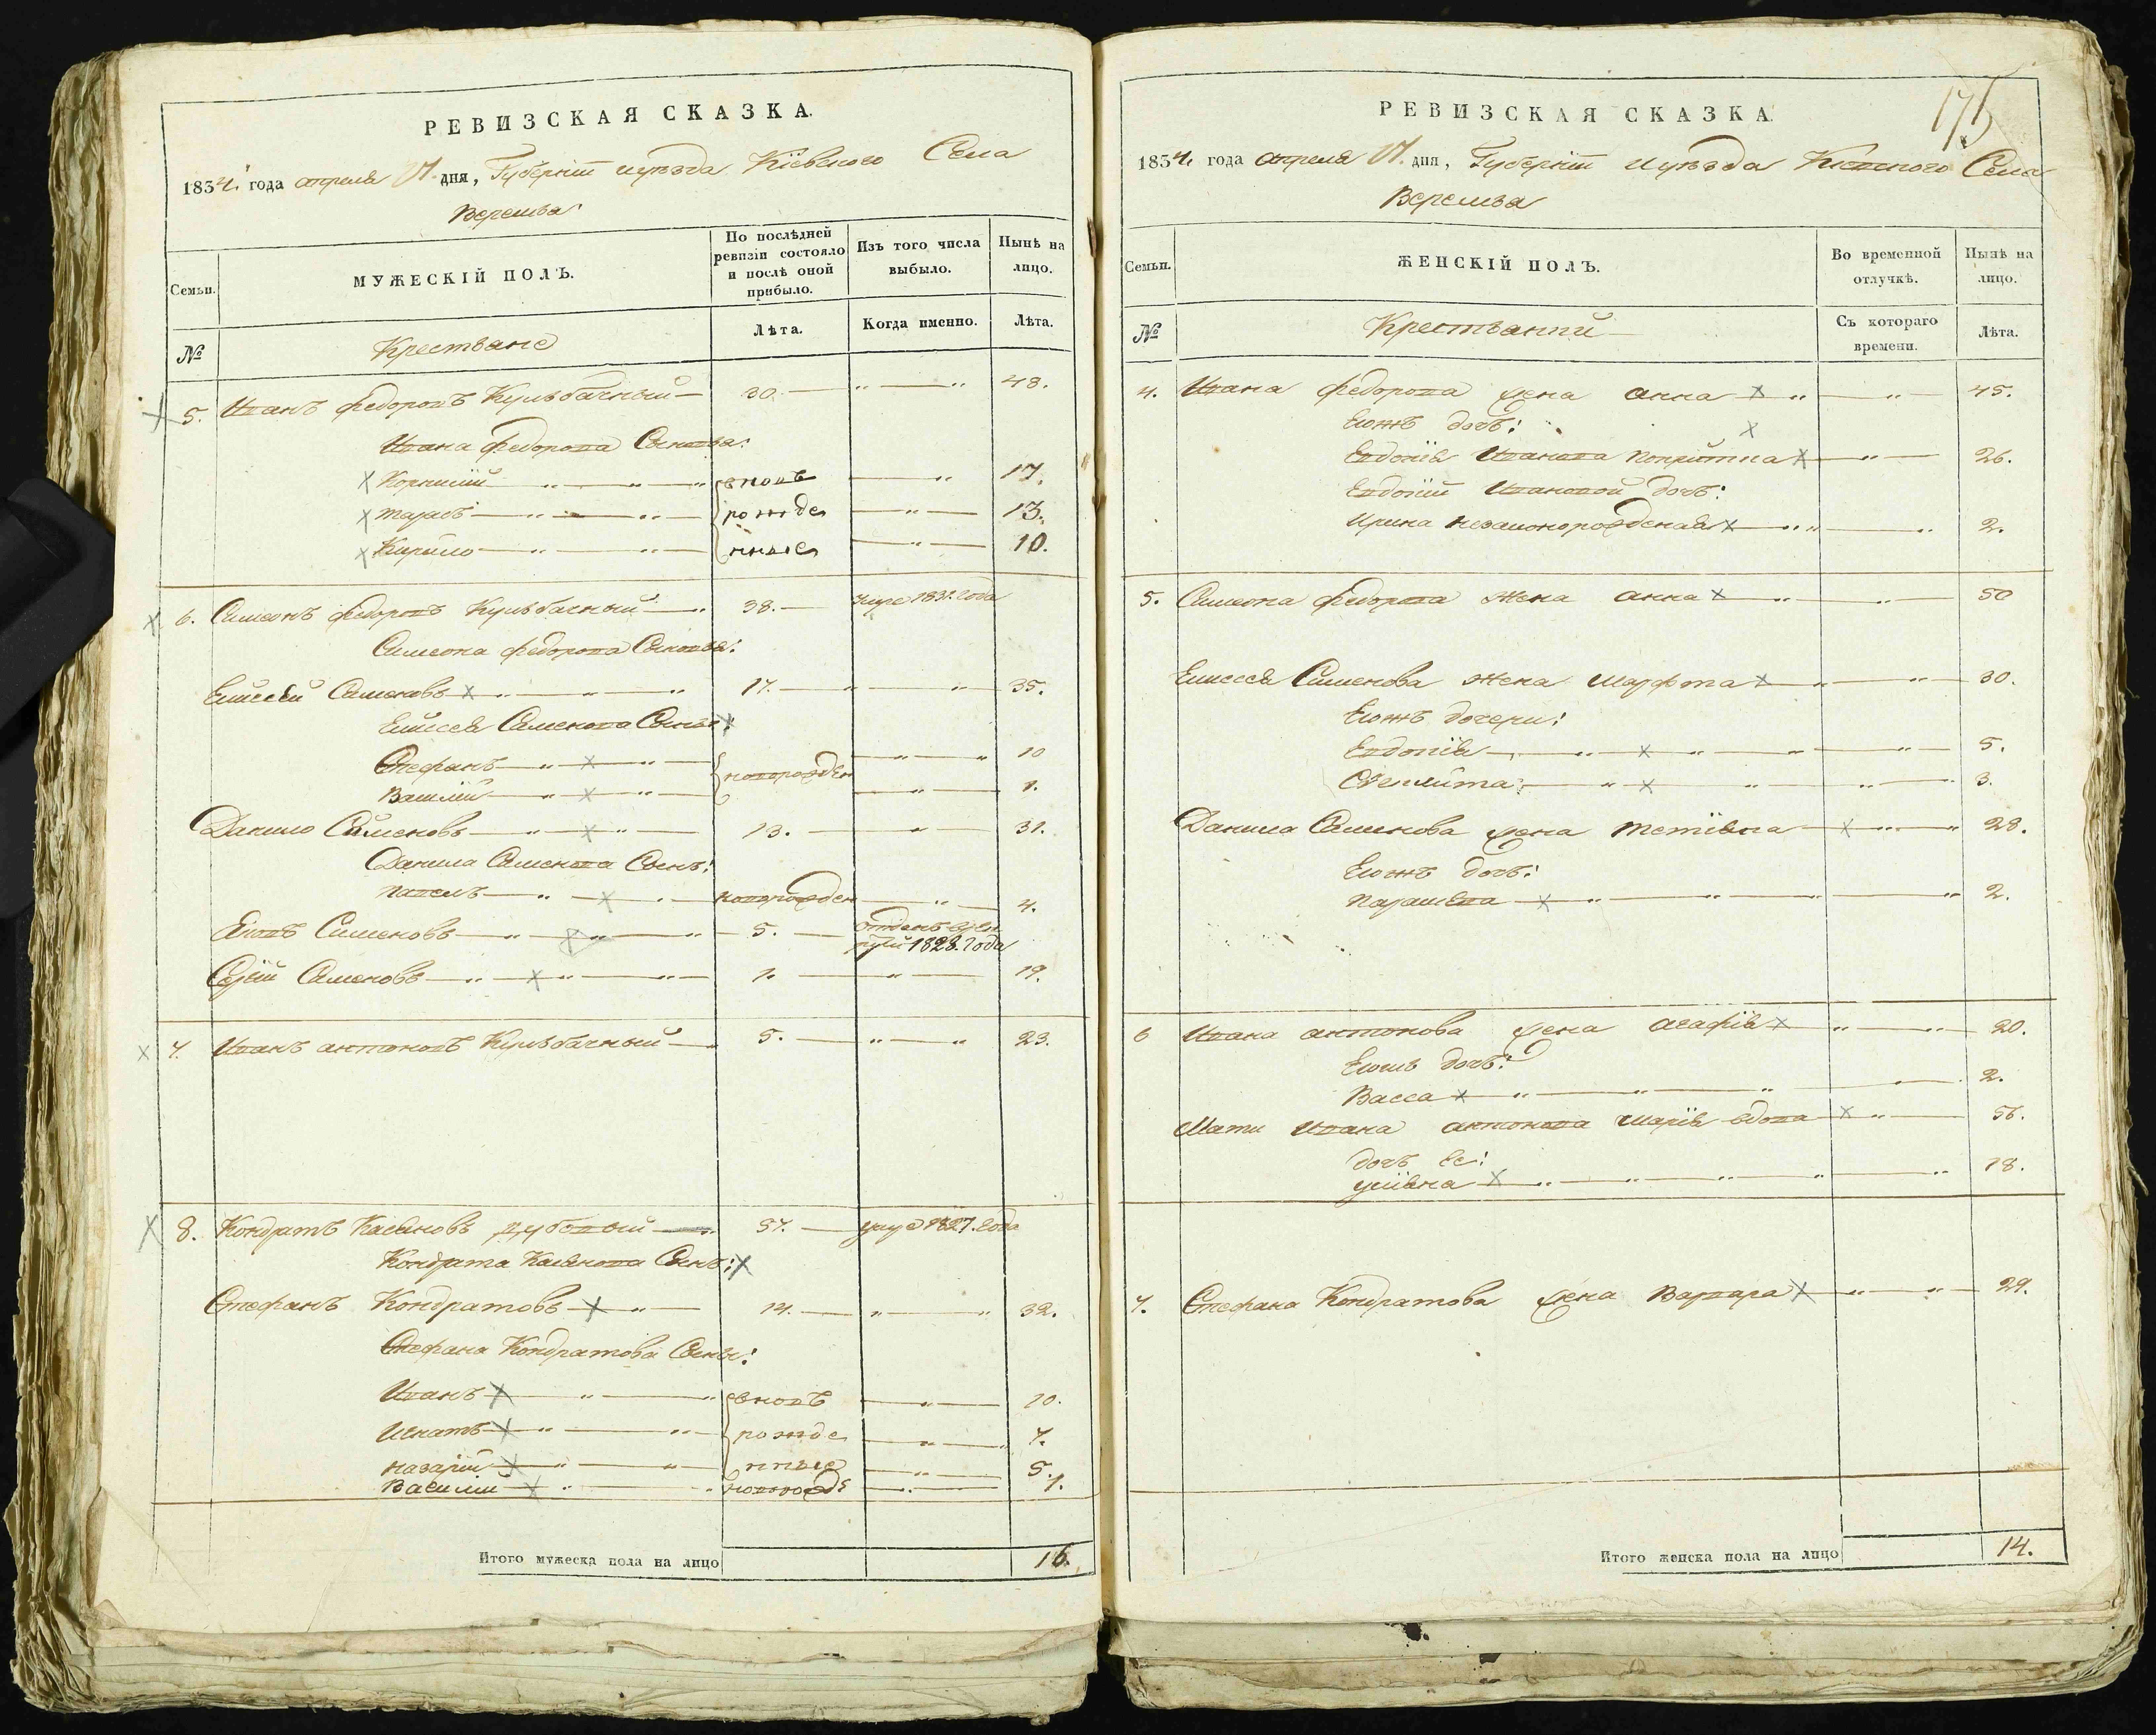 РЕВИЗСКАЯ СКАЗКА.
1834. года апреля дня, Губерніи и уезда Кіевского Села
Веремья
Семьи.
МУЖЕСКІЙ ПОЛЪ.
По послѣдней ревизіи состояло и послѣ оной прибыло.
Изъ того числа выбыло.
Нынѣ на лицо.
№
Крестьяне
Лѣта.
Когда именно.
Лѣта.
5. Иванъ Федоровъ Кульбачный 30. 48.
Ивана Федорова Сыновья:
Корнилій вновь 17.
Тарасъ рожде 13.
Кирило нные 10.
6. Симеонъ Федоровъ Кульбачный 38. умре 1831. года
Симеона Федорова Сыновья:
Елисей Сименовъ 17. 35.
Елисея Сименова Сыны:
Стефанъ новорожден 10
Василій 1.
Данило Сименовъ 13. 31.
Данила Сименова Сынъ:
Павелъ новорожден 4.
Сименовъ 5. 1828. года
Сергій Сименовъ 1. 19.
7. Иванъ Антоновъ Кульбачный 5. 23.
8. Кондратъ Касяновъ Дубовый 57. умре 1827. года
Кондрата Касянова Сынъ:
Стефанъ Кондратовъ 14. 32.
Стефана Кондратова Сыны:
Иванъ вновь 10.
Игнатъ рожде 7.
Назарій нные 5.
Василій новорожде 1.
Итого мужеска пола на лицо 16.
175
РЕВИЗСКАЯ СКАЗКА.
1834. года апреля дня, Губерніи и уезда Кіевского Села
Веремья
Семьи.
ЖЕНСКІЙ ПОЛЪ.
Во временной отлучкѣ.
Нынѣ на лицо.
№
Крестьянки
Съ котораго времени.
Лѣта.
4. Ивана Федорова жена Анна 45.
Еюжъ дочь:
Евдокія Иванова покритка 26.
Евдокіи Ивановой дочь:
Ирина незаконорожденая 2.
5. Симеона Федорова жена Анна 50
Елисея Сименова жена Марфта 30.
Еюжъ дочери:
Евдокія 5.
3.
Данила Сименова жена Тетіяна 28.
Еюжъ дочь:
Параскева 2.
6 Ивана Антонова жена Агафія 20.
Еюжъ дочь:
Васса 2.
Мати Ивана Антонова Марія вдова 56.
дочь ее:
Уліяна 18.
7. Стефана Кондратова жена Варвара 29.
Итого женска пола на лицо 14.